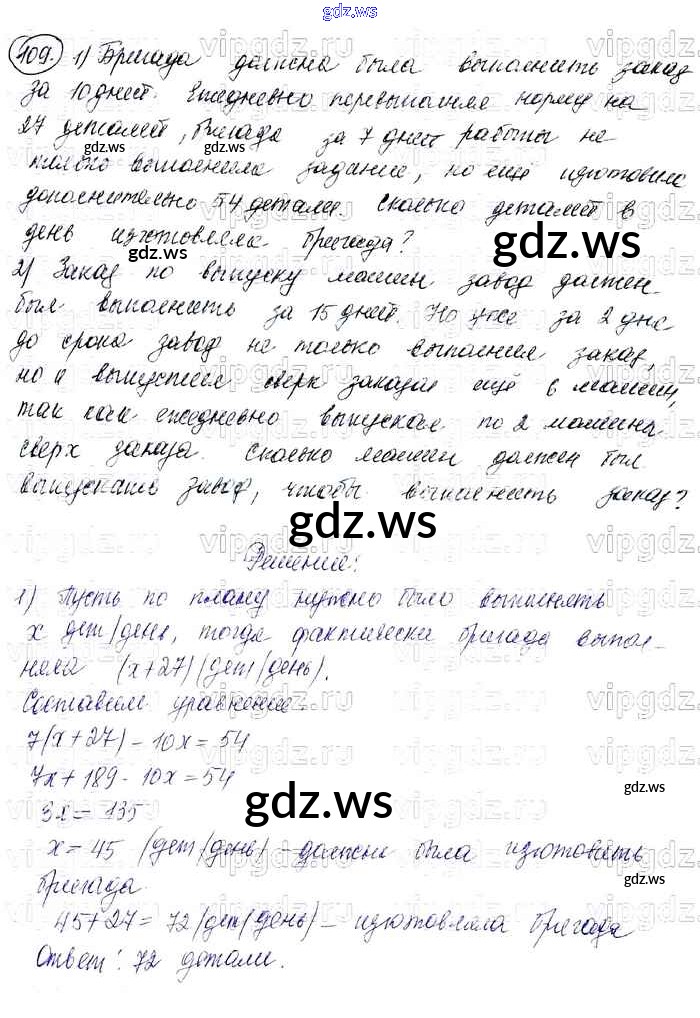 gdz.ws
109. 1) Бригада должна была выполнить заказ
за 10 дней. Ежедневно перевыполняя норму на
27 деталей, бригада за 7 дней работы не
только выполнила задание, но ещё изготовила
дополнительно 54 детали. Сколько деталей в
день изготовляла бригада?
2) Заказ по выпуску машин завод должен
был выполнить за 15 дней. Но уже за 2 дня
до срока завод не только выполнил заказ,
но и выпустил сверх заказа ещё 6 машин,
так как ежедневно выпускал по 2 машины
сверх заказа. Сколько машин должен был
выпускать завод, чтобы выполнить заказ?
Решение:
1) Пусть по плану нужно было выполнять
x дет/день, тогда фактически бригада выпол-
няла (x+27) (дет/день).
Составим уравнение:
7(x+27) - 10x = 54
7x + 189 - 10x = 54
3x = 135
x = 45 (дет/день) - должна была изготовить
бригада
45+27 = 72 (дет/день) - изготовляла бригада
Ответ: 72 детали.